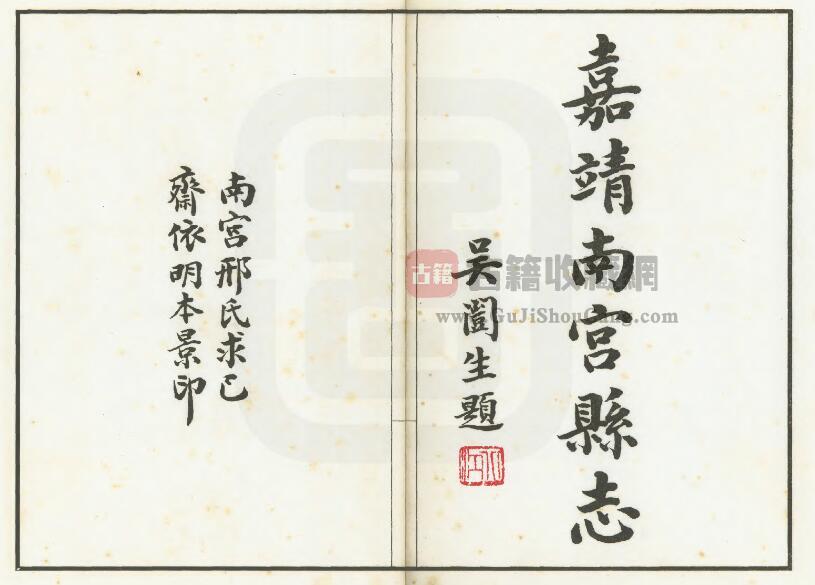 嘉靖南宮縣志
吴闓生題
南宮邢氏求己
齋依明本景印
古籍
古籍收藏網
www.GuJiShouCang.com